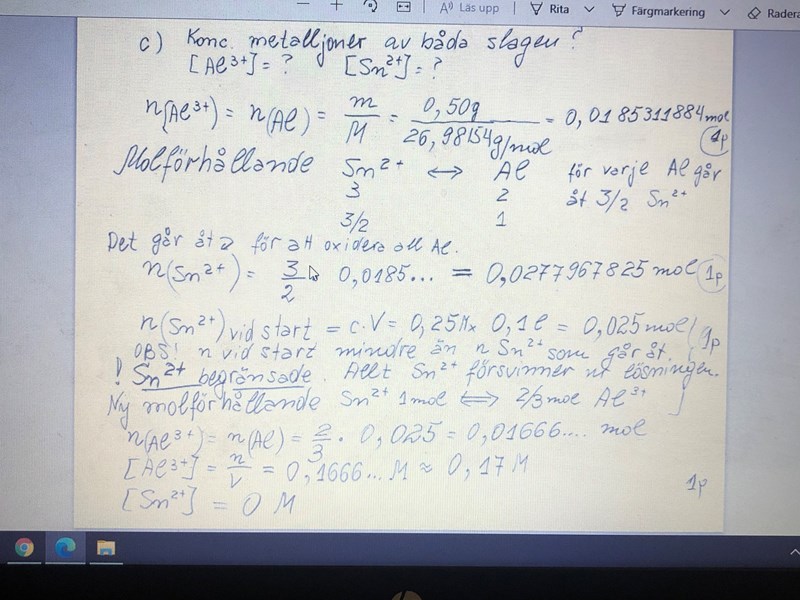 A Läs upp Rita Färgmarkering Radera
c) Konc. metalljoner av båda slagen?
[Al3+] = ? [Sn2+] = ?
n(Al3+) = n(Al) = m/M = 0,50g/26,98154g/mol = 0,0185311884 mol
1p
Molförhållande Sn2+ ⟷ Al för varje Al går
3 2 åt 3/2 Sn2+
3/2 1
Det går åt för att oxidera all Al.
n(Sn2+) = 3/2 0,0185... = 0,0277967825 mol 1p
n(Sn2+) vid start = c·V = 0,25M x 0,1l = 0,025 mol 1p
OBS! n vid start mindre än n Sn2+ som går åt.
! Sn2+ begränsade. Allt Sn2+ försvinner ut lösningen.
Ny molförhållande Sn2+ 1mol ⟺ 2/3mol Al3+
n(Al3+) = n(Al) = 2/3 · 0,025 = 0,01666.... mol
[Al3+] = n/V = 0,1666... M ≈ 0,17 M
1p
[Sn2+] = 0 M